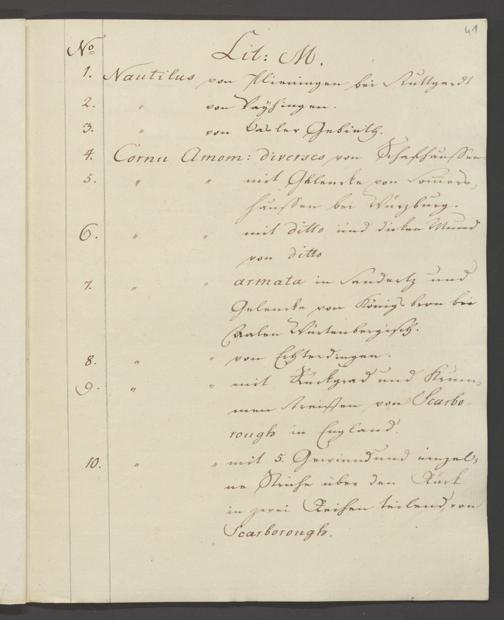 41
No Lit: M.
1. Nautilus von Plieningen bei Stuttgardt
2. " von Vayhingen.
3. " von Basler Gebieth.
4. Cornu Amom: diverses von Schafhaussen
5. " " mit Gelencke von Somers,
haussen bei Würzburg.
6. " " mit ditto und dicken Mund
von ditto
7. " " armata in Sandertz und
Gelencke von Königsbron bei
Aalen Würtenbergisch.
8. " " von Echterdingen.
9. " " mit Rückgrad und Krum,
men Streiffen von Scarbo-
rough in England.
10. " " mit 5 Gewind und einzel,
ne Striche über den Rück
in zwei Reihen teilend, von
Scarborough.